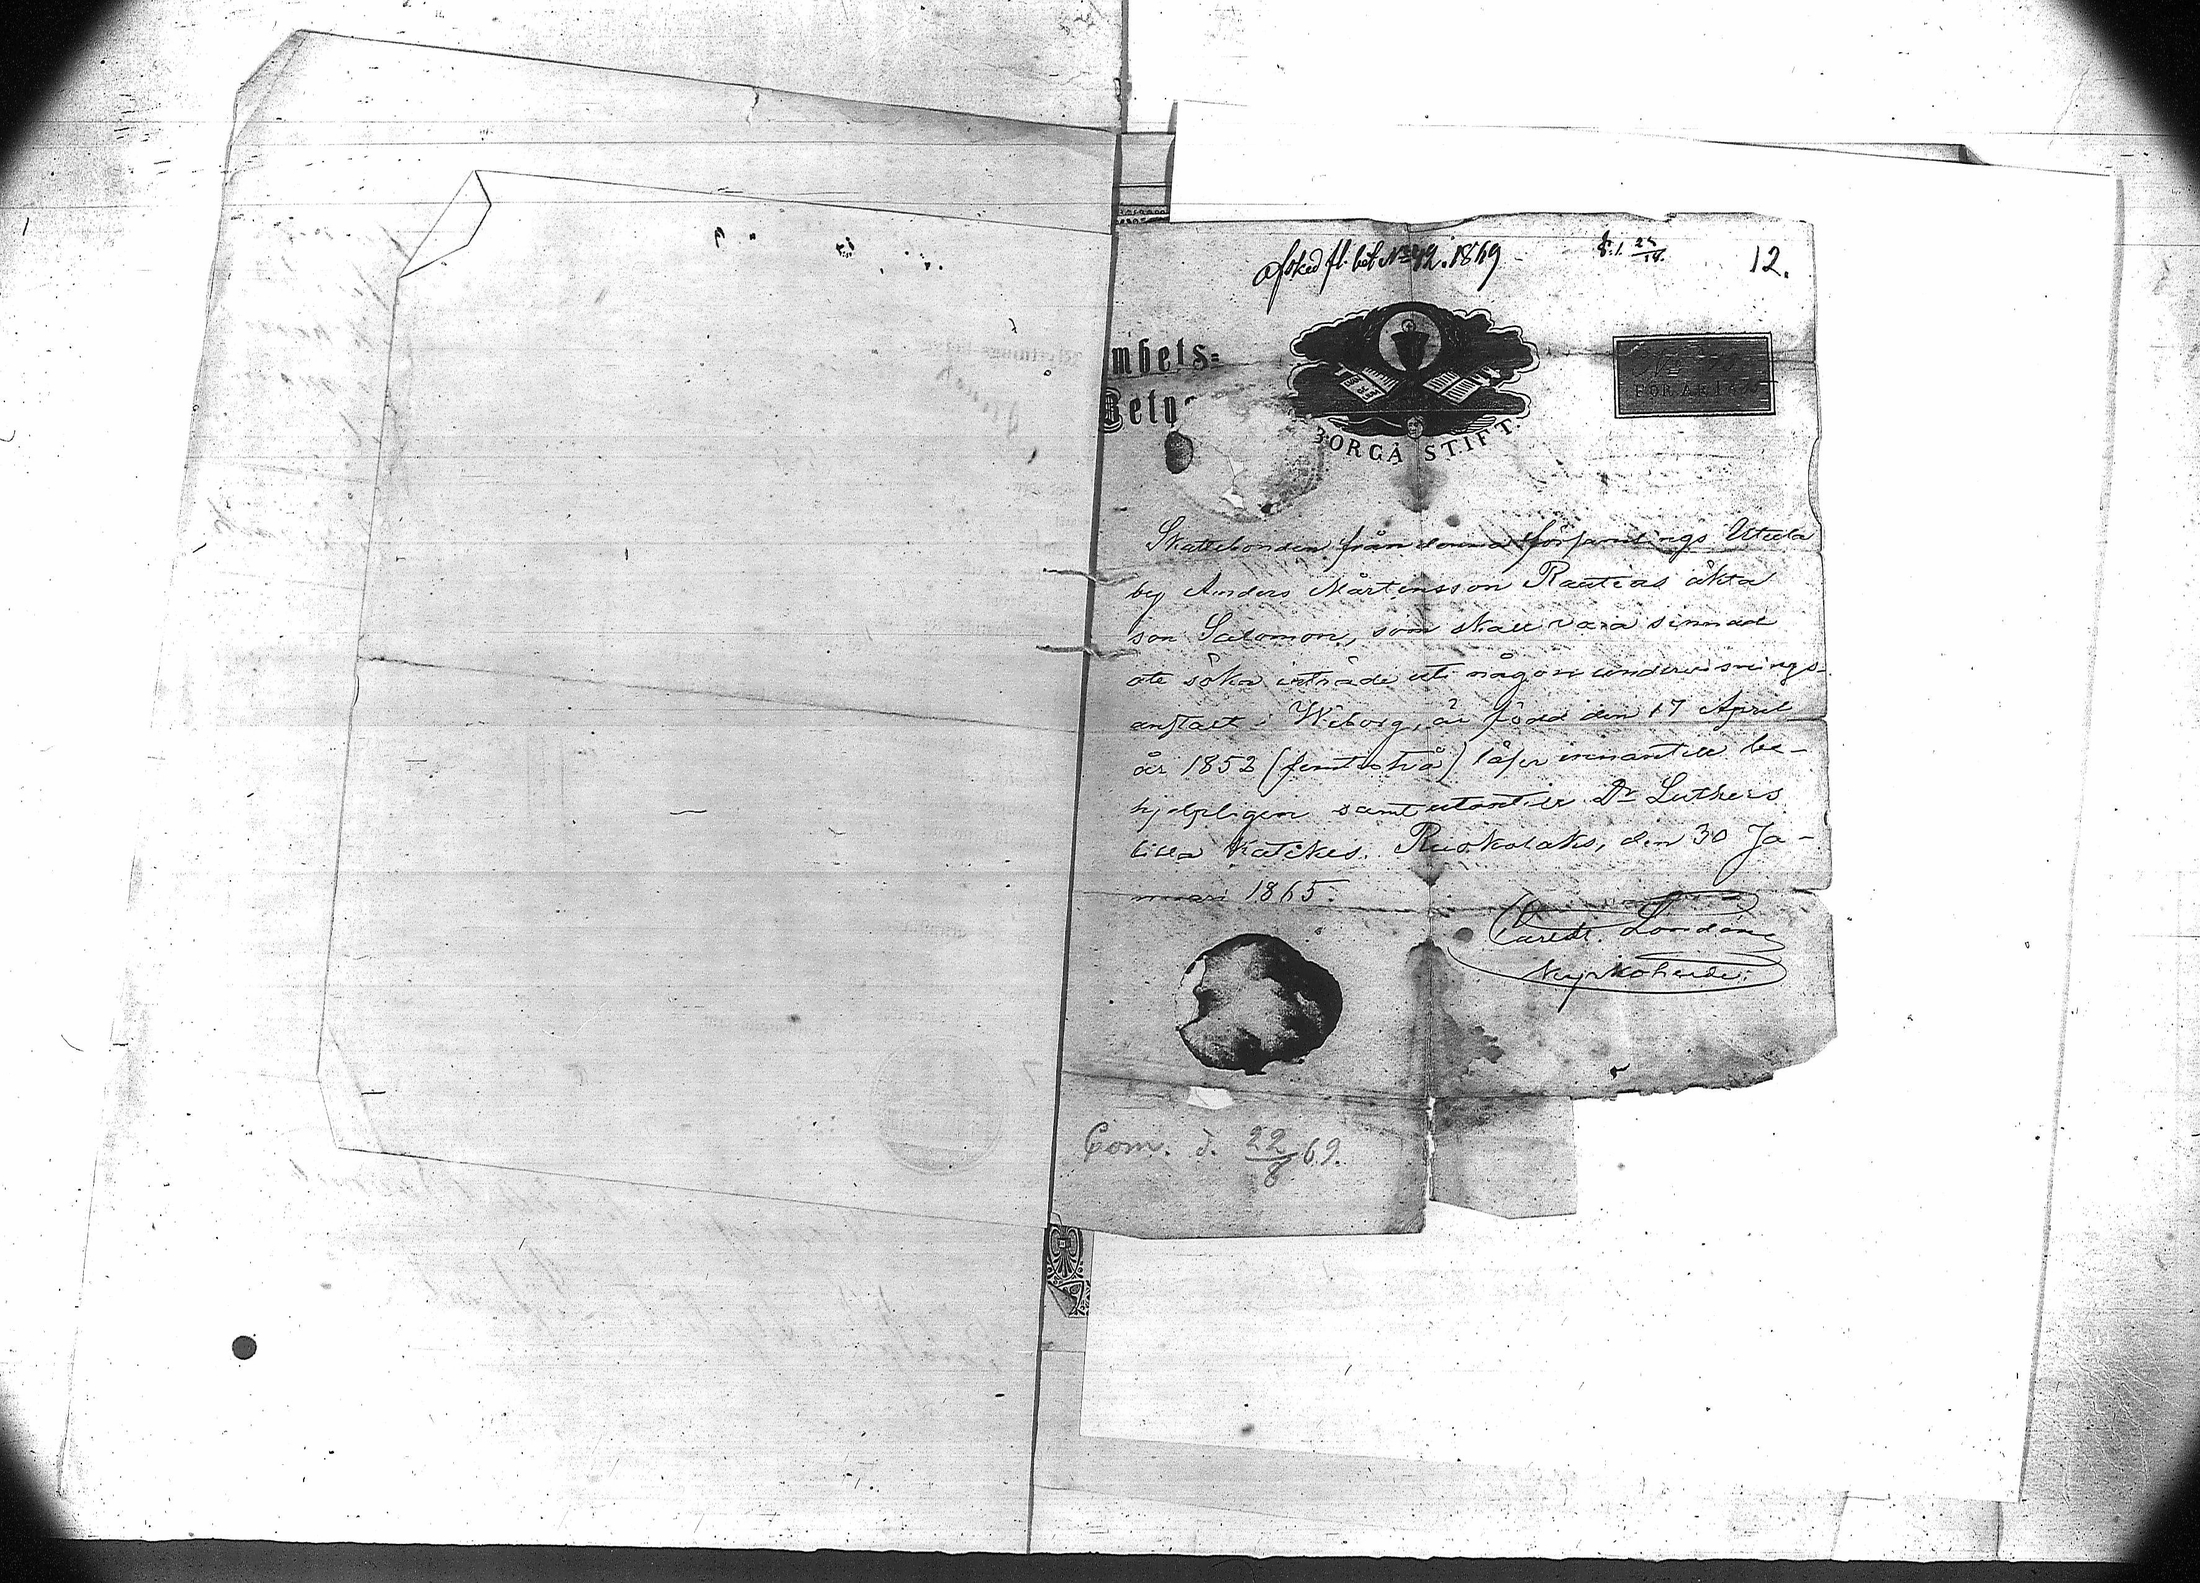 afsked fl. bet. No 42. 1869
12.
mbets=
Bety
BORGÅ STIFT.
No
FÖR ÅR 18
Skattebonden från denna församlings Utula
by Anders Mårtensson Rautias äkta
son Salomon, som skall vara sinnad
att söka inträde uti någon undervisnings-
anstalt i Wiborg, är född den 17 April
år 1852 (femtiotvå) läser innantill be-
hjelpligen samt utantill Dr Luthers
lilla Katekes. Ruokolaks, den 30 Ja-
nuari 1865.
London
Kyrkoherde.
Com. d. 22/8 69.